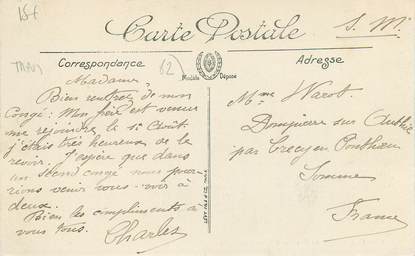 15f
Carte Postale
S. M.
Correspondance
Adresse
TRAM
62
Modèle Déposé
Madame
Bien rentré de mon
congé. Mon frère est venu
me rejoindre le 1r Août
j'étais très heureux de le
revoir. J'espère que dans
un second congé nous pour-
rions venir vous voir à
deux.
Bien les compliments à
vous tous.
Charles
Mme Warot.
Dompierre sur Authie
par Crecy en Ponthieu
Somme
France